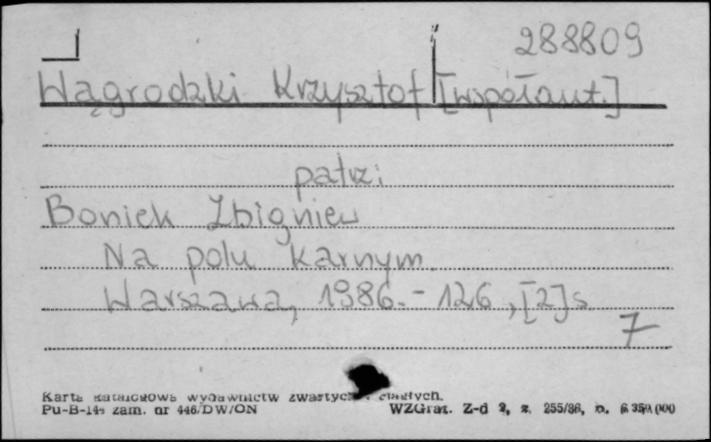 288809
Wągrodzki Krzysztof [współaut.]
patrz:
Boniek Zbigniew
Na polu karnym.
Warszawa, 1986. - 126, [2] s.
7
Karta katalogowa wydawnictw zwartych i ciągłych.
Pu-B-14 zam. nr 446/DW/ON WZGraf. Z-d 2, z. 255/86, n.